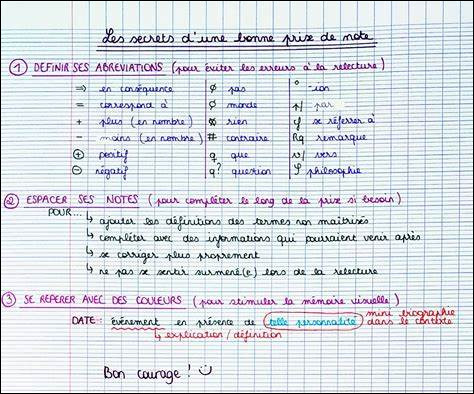 Les secrets d'une bonne prise de note
① DEFINIR SES ABREVIATIONS (pour éviter les erreurs à la relecture)
⇒ en conséquence ø pas ° -ion
= correspond à ø monde p/ par
+ plus (en nombre) ø rien cf se référer à
- moins (en nombre) # contraire Rq remarque
⊕ positif q que v/ vers
⊖ négatif q? question φ philosophie
② ESPACER SES NOTES (pour compléter le long de la prise si besoin)
POUR...
↳ ajouter les définitions des termes non maîtrisés
↳ compléter avec des informations qui pourraient venir après
↳ se corriger plus proprement
↳ ne pas se sentir surmené(e) lors de la relecture
③ SE REPERER AVEC DES COULEURS (pour stimuler la mémoire visuelle)
DATE : évènement en présence de telle personnalité mini biographie dans le contexte
↳ explication / définition
Bon courage !